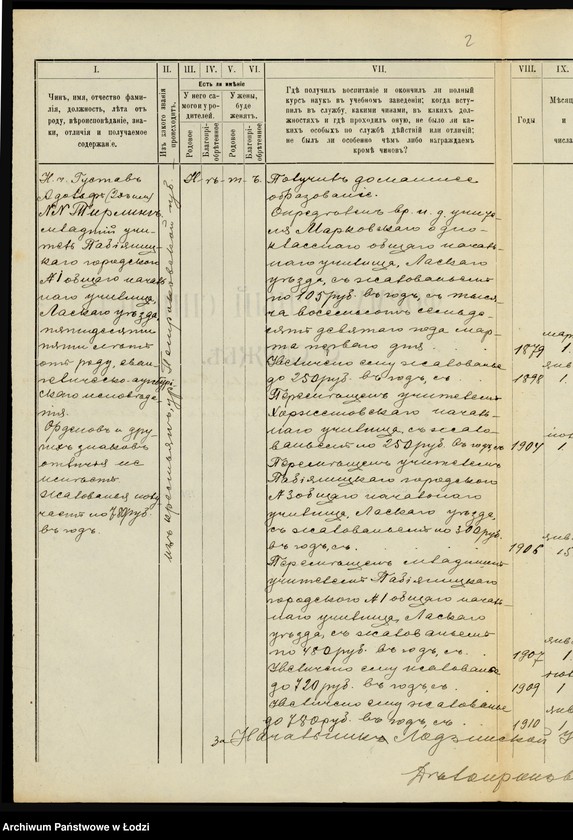 2
I.
Чинъ, имя, отчество фами-
лія, должность, лѣта отъ
роду, вѣроисповѣданіе, зна-
ки, отличія и получаемое
содержаніе.
II.
Изъ какого званія
происходитъ.
III. IV. V. VI.
Есть ли имѣніе
У него са-
мого и у ро-
дителей.
У жены,
буде
женатъ.
Родовое
Благопрі-
обрѣтенное
Родовое
Благопрі-
обрѣтенное
VII.
Гдѣ получилъ воспитаніе и окончилъ ли полный
курсъ наукъ въ учебномъ заведеніи; когда всту-
пилъ въ службу, какими чинами, въ какихъ дол-
жностяхъ и гдѣ проходилъ оную, не было ли ка-
кихъ особыхъ по службѣ дѣйствій или отличій;
не былъ ли особенно чѣмъ либо награждаемъ
кромѣ чиновъ?
VIII.
Годы
IX.
Мѣсяц
и
числа
Н. ч. Густавъ
Адольфъ
Тирлингъ
младшій учи-
тель Пабіяниц-
каго городского
№1 общаго началь-
наго училища,
Ласкаго уѣзда,
пятидесяти
пяти лѣтъ
отъ роду, еван-
гелическо-аугсбург-
скаго исповѣда-
нія.
Орденовъ и дру-
гихъ знаковъ
отличія не
имѣетъ.
Жалованья полу-
чаетъ по 780 руб.
въ годъ.
изъ крестьянъ, ур. Петроковской губ.
Н - ѣ - т - ъ.
Получилъ домашнее
образованіе.
Опредѣленъ вр. и. д. учите-
ля Марковскаго одно-
класснаго общаго началь-
наго училища, Ласкаго
уѣзда, съ жалованьемъ
по 105 руб. въ годъ, съ тыся-
ча восемьсотъ семьде-
сятъ девятаго года мар-
та перваго дня.
1879 1.
Увеличено ему жалованье
до 250 руб. въ годъ, съ
1898 1.
Перемѣщенъ учителемъ
началь-
наго училища, съ жало-
ваньемъ по 250 руб. въ годъ, съ
1904 1
Перемѣщенъ учителемъ
Пабіяницкаго городского
№3 общаго начальнаго
училища, Ласкаго уѣзда,
съ жалованьемъ по 300 руб.
въ годъ, съ
1906 15
Перемѣщенъ младшимъ
учителемъ Пабіяницкаго
городского №1 общаго началь-
наго училища, Ласкаго
уѣзда, съ жалованьемъ
по 480 руб. въ годъ, съ
1907 1
Увеличено ему жалованье
до 720 руб. въ годъ, съ
1909 1
Увеличено ему жалованье
до 780 руб. въ годъ, съ
1910 1
За Начальника Лодзинской
Archiwum Państwowe w Łodzi